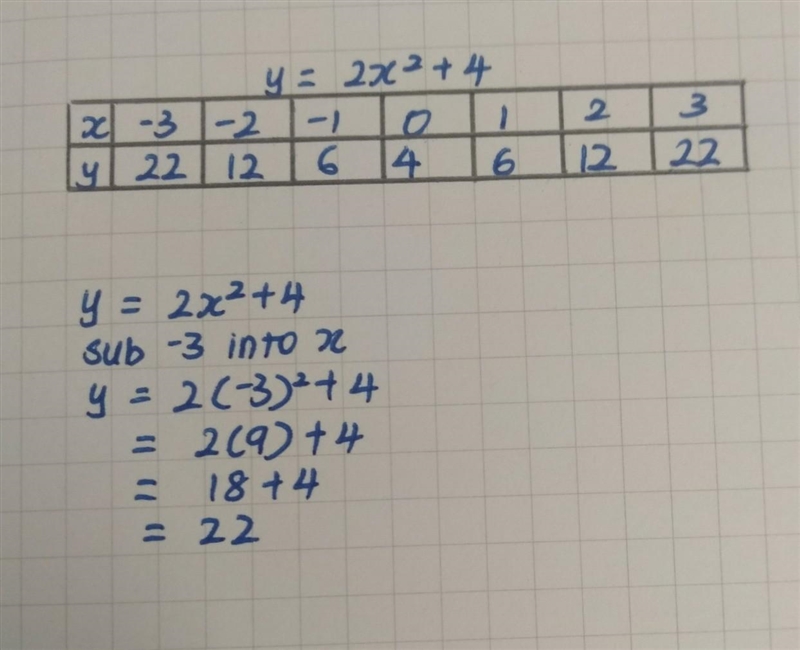 y = 2x² + 4
x -3 -2 -1 0 1 2 3
y 22 12 6 4 6 12 22
y = 2x² + 4
sub -3 into x
y = 2(-3)² + 4
= 2(9) + 4
= 18 + 4
= 22